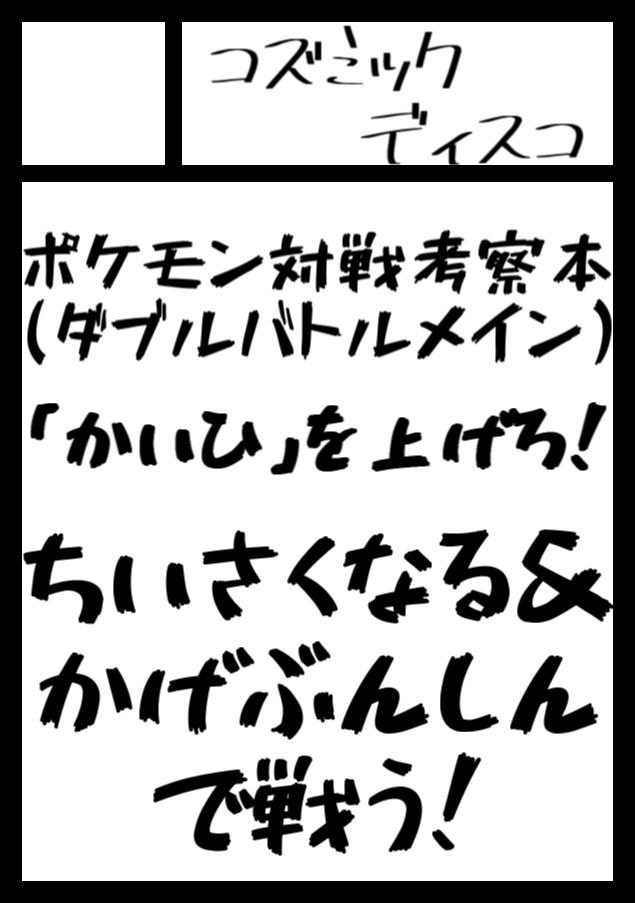 コズミック
ディスコ
ポケモン対戦考察本
(ダブルバトルメイン)
「かいひ」を上げろ!
ちいさくなる&
かげぶんしん
で戦う!